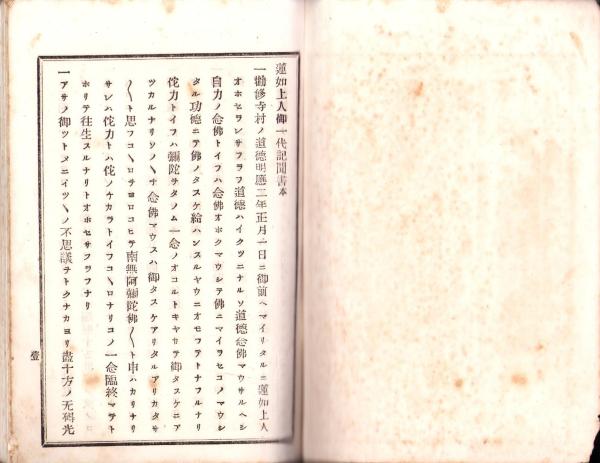 蓮如上人御一代記聞書 本
一勸修寺村ノ道德明應二年正月一日ニ御前ヘマイリタルニ蓮如上人
オホセラレサフラフ道德ハイクツニナルソ道德念佛マウサルヘシ
自力ノ念佛トイフハ念佛オホクマウシテ佛ニマイラセコノマウシ
タル功德ニテ佛ノタスケ給ハンスルヤウニオモフテトナフルナリ
侘力トイフハ彌陀ヲタノム一念ノオコルトキヤカテ御タスケニア
ツカルナリソノヽチ念佛マウスハ御タスケアリタルアリカタサ
〱ト思フコヽロヲヨロコヒテ南無阿彌陀佛〱ト申ハカリナリ
サレハ侘力トハ侘ノチカラトイフコヽロナリコノ一念臨終マテト
ホリテ往生スルナリトオホセサフラフナリ
一アサノ御ツトメニイツヽノ不思議ヲトクナカヨリ盡十方ノ无碍光
壹